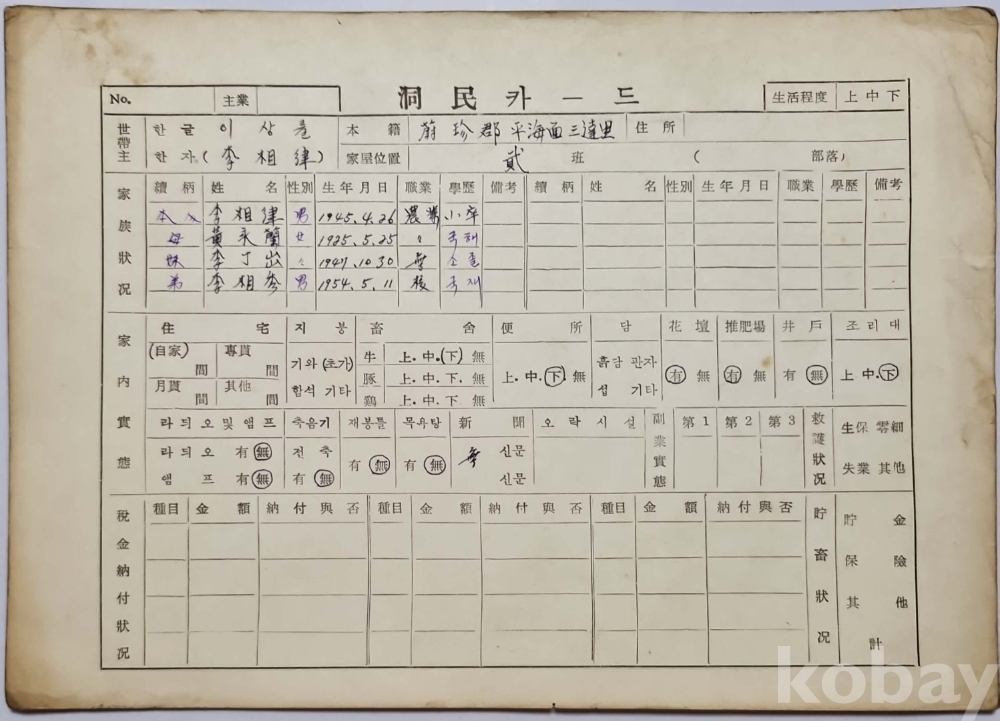 No. 主業 洞民카ー드 生活程度 上中下
世帶主 한글 이상률 本籍 蔚珍郡 平海面 三達里 住所
한자 (李相律) 家屋位置 貳 班 ( 部落)
家族狀况 續柄 姓名 性別 生年月日 職業 學歷 備考 續柄 姓名 性別 生年月日 職業 學歷 備考
本人 李相律 男 1945.4.26 農業 小卒
母 黃 蘭 女 1925.5.25 〃 국해
妹 李 出 〃 1947.10.30 무 소졸
弟 李相 男 1954.5.11 국재
家內實態 住宅 지붕 畜舍 便所 담 花壇 推肥場 井戶 조리대
(自家) 間 專貰 間 기와 (초가) 牛 上.中.(下) 無 上.中.下.無 흙담 판자 有 無 有 無 有 無 上 中 下
豚 上.中.下.無
月貰 間 其他 間 함석 기타 鷄 上.中.下 無 섭 기타
라듸오 및 앰프 축음기 재봉틀 목욕탕 新聞 오락시설 副業實態 第1 第2 第3 救護狀况 生保 零細
라듸오 有 無 전축 有 無 有 無 무 신문
앰프 有 無 有 無 신문 失業 其他
稅金納付狀况 種目 金額 納付與否 種目 金額 納付與否 種目 金額 納付與否 貯畜狀况 貯金
保險
其他
計
kobay